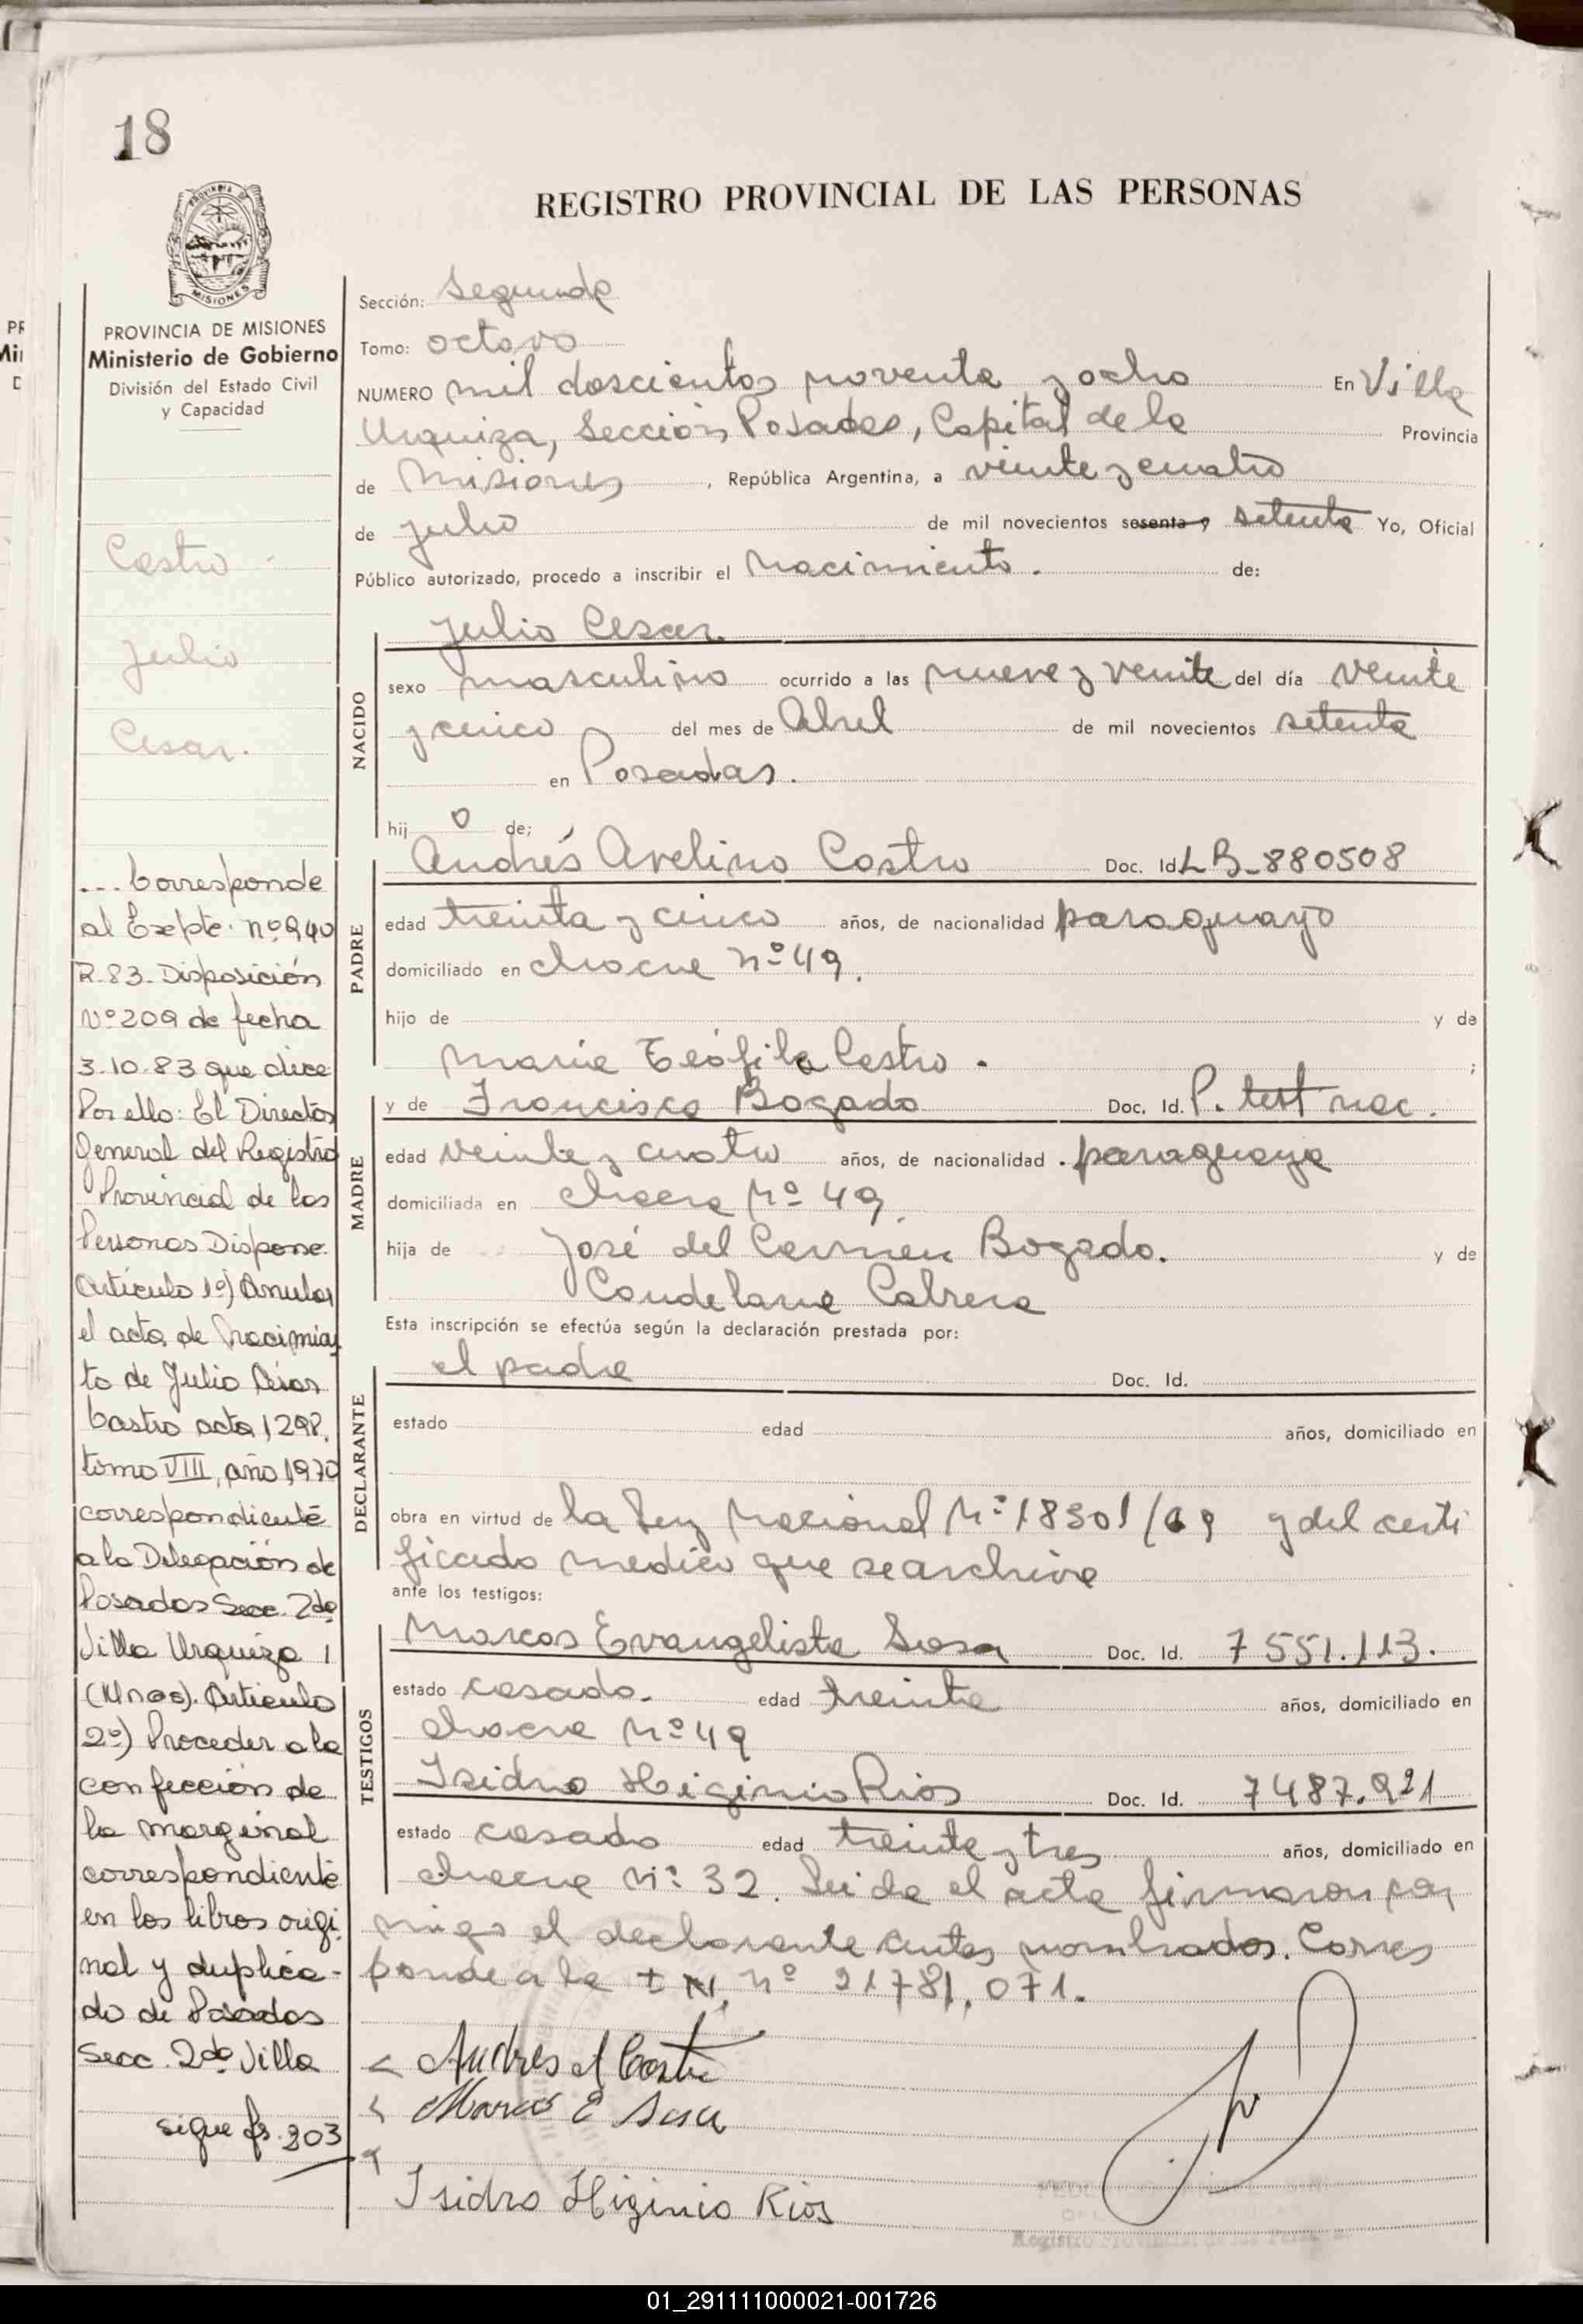 18
PROVINCIA DE MISIONES
MISIONES
PROVINCIA DE MISIONES
Ministerio de Gobierno
División del Estado Civil
y Capacidad
Castro
Julio
Cesar.
... Corresponde
al Expte. nº 940
R-83- Disposición
Nº 209 de fecha
3-10-83 que dice
Por ello: El Director
General del Registro
Provincial de las
Personas Dispone.
Artículo 1º) Anular
el acta de Nacimien
to de Julio César
Castro acta 1298,
tomo VIII, año 1970
correspondiente
a la Delegación de
Posadas Secc. 2da
Villa Urquiza 1
(Unos). Artículo
2º) Proceder a la
confección de
la marginal
correspondiente
en los libros origi
nal y duplica-
do de Posadas
Secc. 2da Villa
sigue fs. 303
REGISTRO PROVINCIAL DE LAS PERSONAS
Sección: Segunda
Tomo: octavo
NUMERO mil doscientos noventa y ocho En Villa
Urquiza, Sección Posadas, Capital de la Provincia
de Misiones, República Argentina, a veinte y cuatro
de julio de mil novecientos sesenta y setenta Yo, Oficial
Público autorizado, procedo a inscribir el Nacimiento. de:
NACIDO
Julio Cesar.
sexo masculino ocurrido a las nueve y veinte del día veinte
y cinco del mes de Abril de mil novecientos setenta
en Posadas.
hij o de;
PADRE
Andrés Avelino Castro Doc. Id. LB-880508
edad treinta y cinco años, de nacionalidad paraguayo
domiciliado en chacra nº 49.
hijo de y de
Maria Teófila Castro. ;
MADRE
y de Francisca Bogado Doc. Id. P. test nac.
edad veinte y cuatro años, de nacionalidad paraguaya
domiciliada en chacra Nº 49
hija de José del Carmen Bogado. y de
Candelaria Cabrera
Esta inscripción se efectúa según la declaración prestada por:
DECLARANTE
el padre Doc. Id.
estado edad años, domiciliado en
obra en virtud de la Ley Nacional Nº 18301/69 y del certi
ficado medico que se archiva
ante los testigos:
TESTIGOS
Marcos Evangelista Sosa Doc. Id. 7551.113.
estado casado. edad treinta años, domiciliado en
chacra Nº 49
Isidro Higinio Rios Doc. Id. 7487.921
estado casado edad treinta y tres años, domiciliado en
chacra Nº 32. Leida el acta firmaron con
migo el declarante antes nombrados. Corres
ponde a la nº 21781.071.
Andres A Castro
Marcos E Sosa
Isidro Higinio Rios
Registro Provincial de las Personas
01_291111000021-001726